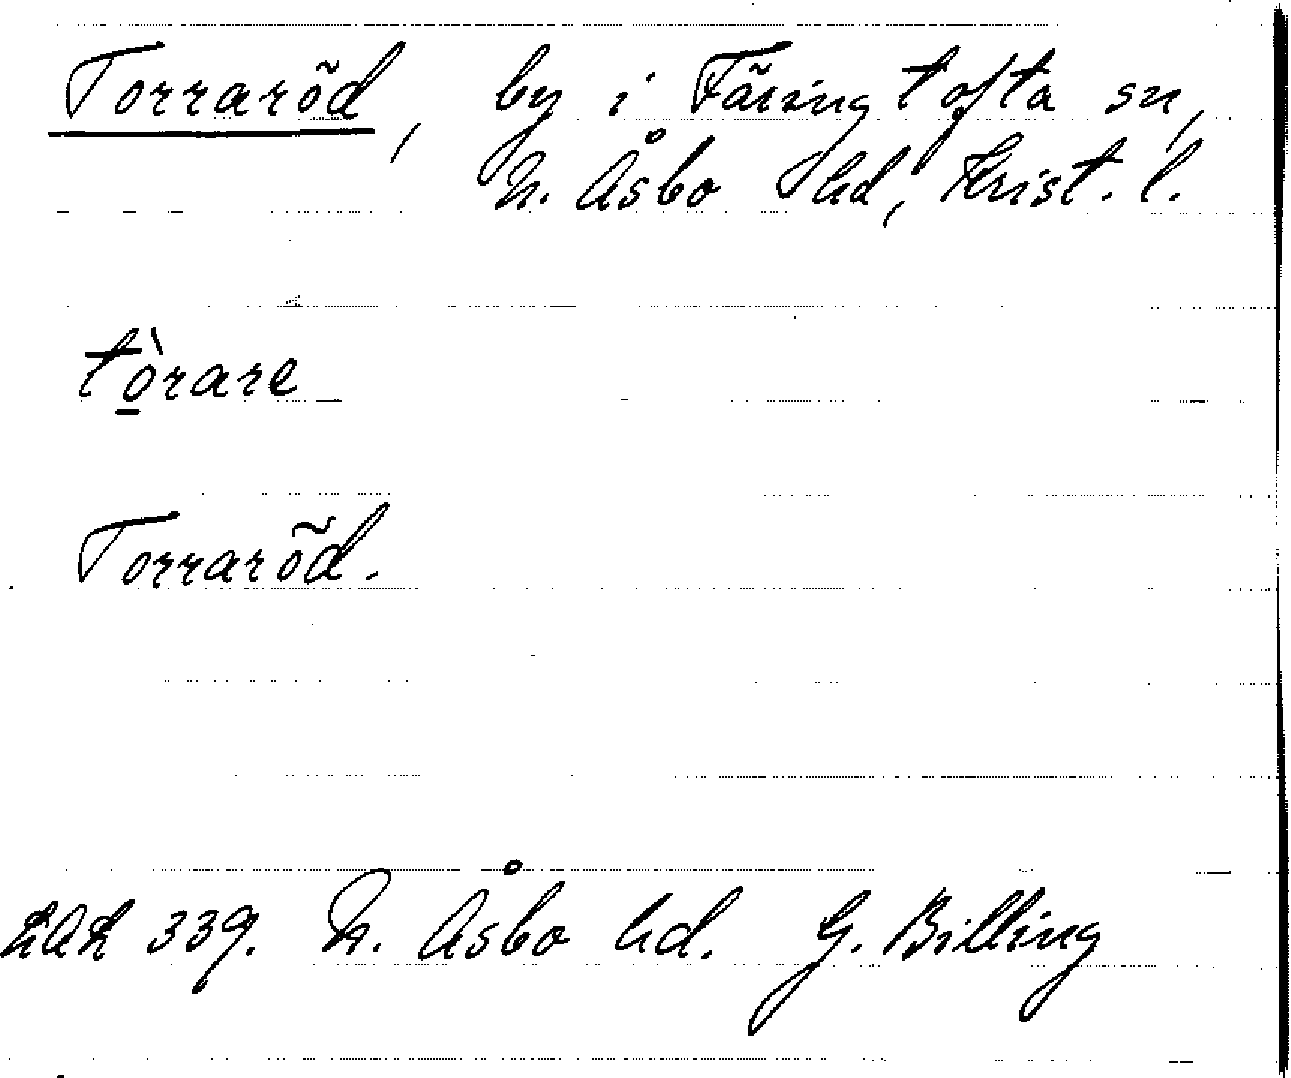 Torraröd, by i Färingtofta sn,
N. Åsbo hd, Krist. l.
tò̲rare
Torraröd.
LAL 339. N. Åsbo hd. G. Billing